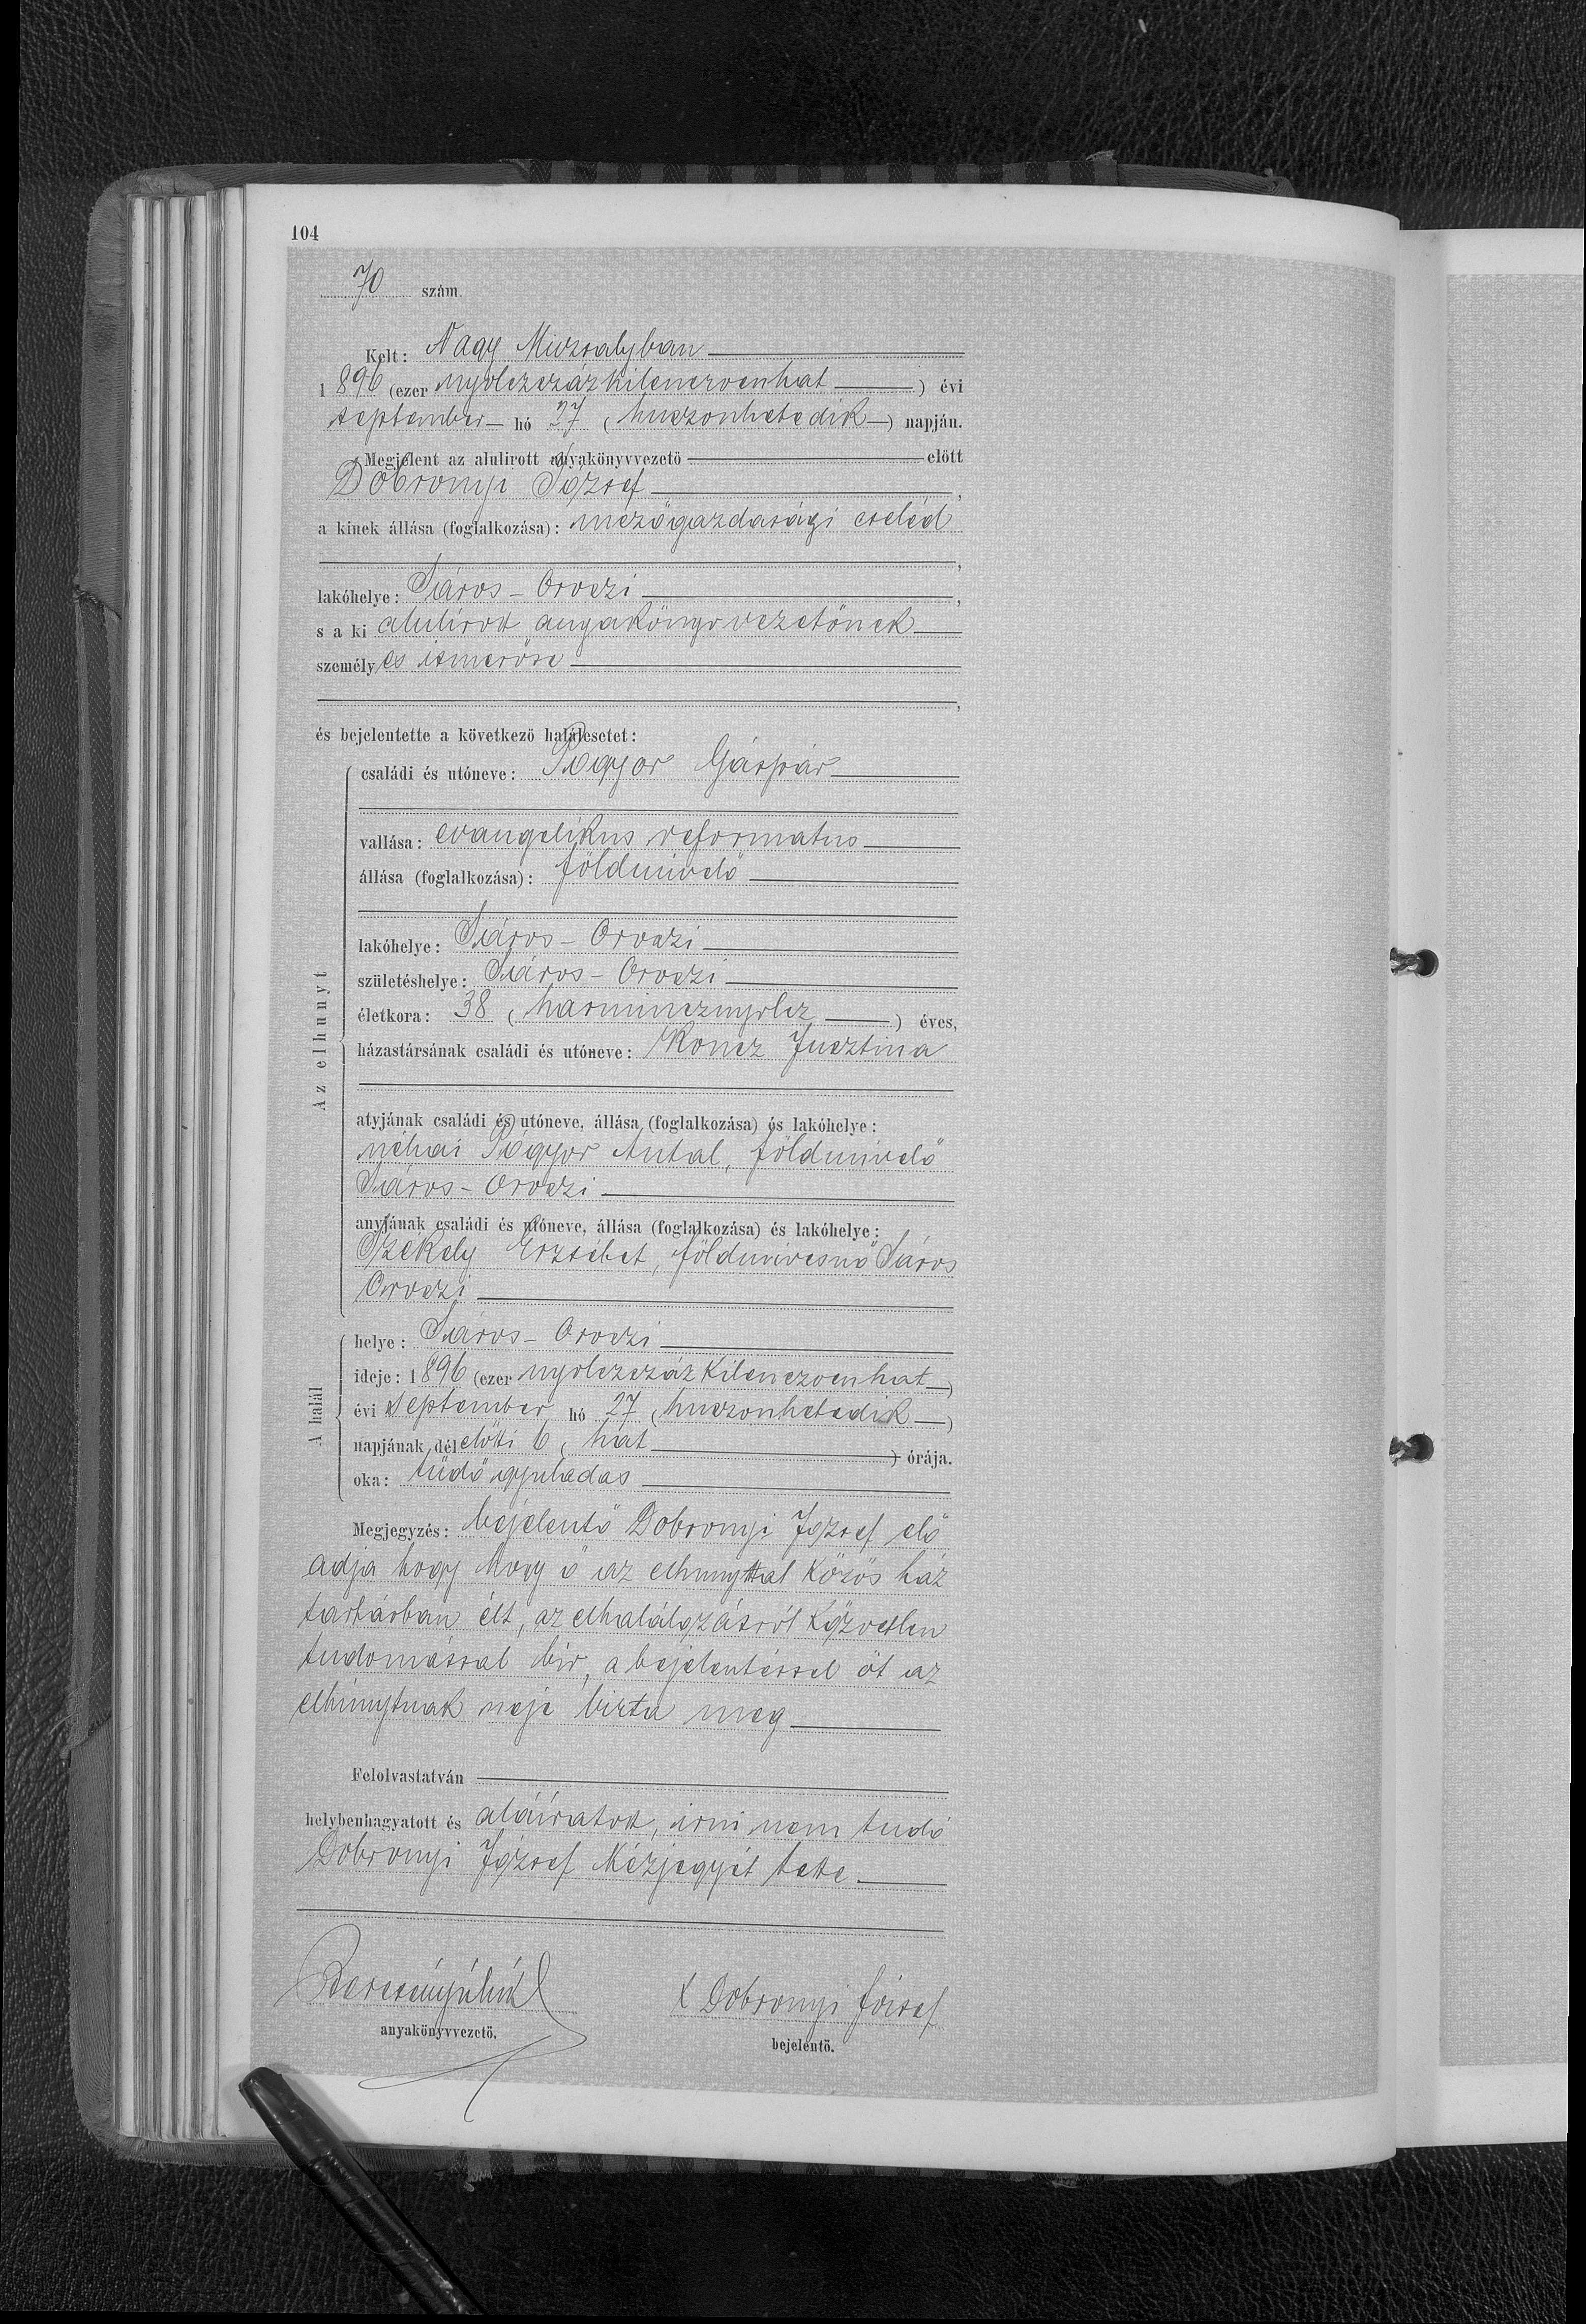 104
70 szám.
Kelt: Nagy Muzsalyban
1896 (ezer nyolczszázkilenczvenhat) évi
september hó 27 (huszonhetedik) napján.
Megjelent az alulirott anyakönyvvezető előtt
Dobronyi József,
a kinek állása (foglalkozása): mezőgazdasági cseléd
,
lakóhelye: Sáros-Oroszi,
s a ki alulírott anyakönyvvezetőnek
személyes ismerőse
,
és bejelentette a következő halálesetet:
Az elhunyt
családi és utóneve: Pógyor Gáspár
vallása: evangelikus reformatus
állása (foglalkozása): földmivelő
lakóhelye: Sáros-Oroszi
születéshelye: Sáros-Oroszi
életkora: 38 (harmincznyolcz) éves,
házastársának családi és utóneve: Koncz Jusztina
atyjának családi és utóneve, állása (foglalkozása) és lakóhelye:
néhai Pógyor Antal, földmivelő
Sáros-Oroszi
anyjának családi és utóneve, állása (foglalkozása) és lakóhelye:
Székely Erzsébet, földmivesnő Sáros
Oroszi
A halál
helye: Sáros-Oroszi
ideje: 1896 (ezer nyolczszázkilenczvenhat)
évi September hó 27 (huszonhetedik)
napjának délelőtti 6 (hat) órája.
oka: tüdőgyuladas
Megjegyzés: bejelentő Dobronyi József elő
adja hogy hogy ő az elhunyttal közös ház
tartásban élt, az elhalálozásról közvetlen
tudomással bír, a bejelentéssel őt az
elhunytnak neje bizta meg
Felolvastatván
helybenhagyatott és aláíratott, irni nem tudó
Dobronyi József kézjegyét tette.
anyakönyvvezető.
x Dobronyi József
bejelentő.